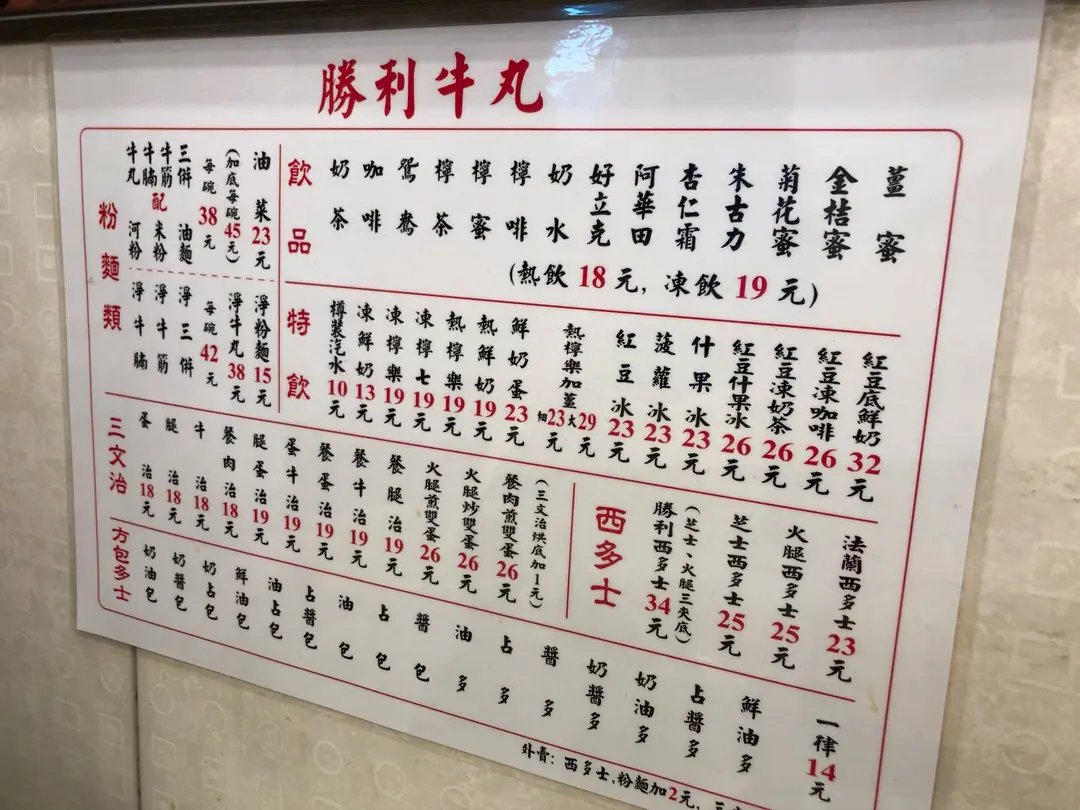 勝利牛丸
粉麵類
牛丸 河粉
牛腩
牛筋 配 米粉
三併 油麵
每碗38元
(加底每碗45元)
油菜23元
淨牛腩
淨牛筋
淨三併
每碗42元
淨牛丸38元
淨粉麵15元
飲品
奶茶
咖啡
鴛鴦
檸茶
檸蜜
檸啡
奶水
好立克
阿華田
杏仁霜
朱古力
菊花蜜
金桔蜜
薑蜜
(熱飲18元, 凍飲19元)
特飲
樽裝汽水10元
凍鮮奶13元
凍檸樂19元
凍檸七19元
熱檸樂19元
熱鮮奶19元
鮮奶蛋23元
熱檸樂加薑 細23 大29元
紅豆冰23元
菠蘿冰23元
什果冰23元
紅豆什果冰26元
紅豆凍奶茶26元
紅豆凍咖啡26元
紅豆底鮮奶32元
三文治
蛋治18元
腿治18元
牛治18元
餐肉治18元
腿蛋治19元
蛋牛治19元
餐蛋治19元
餐牛治19元
餐腿治19元
火腿煎雙蛋26元
火腿炒雙蛋26元
餐肉煎雙蛋26元
(三文治烘底加1元)
西多士
勝利西多士34元
(芝士、火腿三夾底)
芝士西多士25元
火腿西多士25元
法蘭西多士23元
方包多士
奶油包
奶醬包
奶占包
鮮油包
油占包
占醬包
油包
占包
醬包
油多
占多
醬多
奶醬多
奶油多
占醬多
鮮油多
一律14元
外賣: 西多士,粉麵加2元,